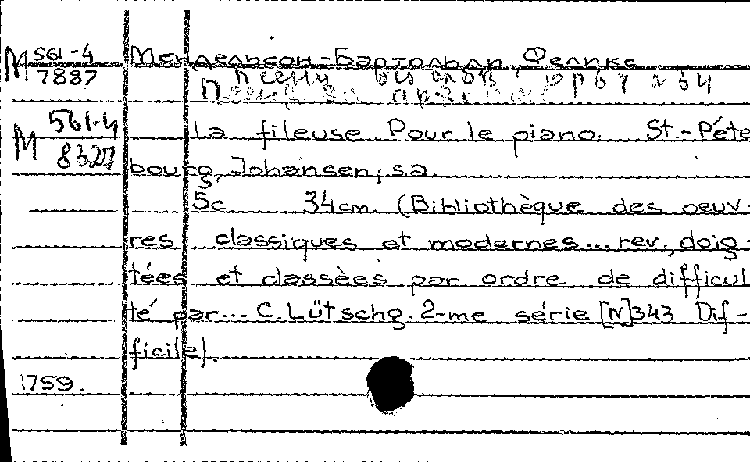 М 561-4
7887
Мендельсон-Бартольди Феликс
Песни без слов
М 561-4
8327
La fileuse. Pour le piano. St-Péte
bourg, Johansen, s.a.
5c. 34cm. (Bibliothèque des oeuv-
res classiques et modernes... rev, doig-
tées et classées par ordre de difficul
té par... C. Lütschg. 2-me série [N]343 Dif-
ficile).
1759.